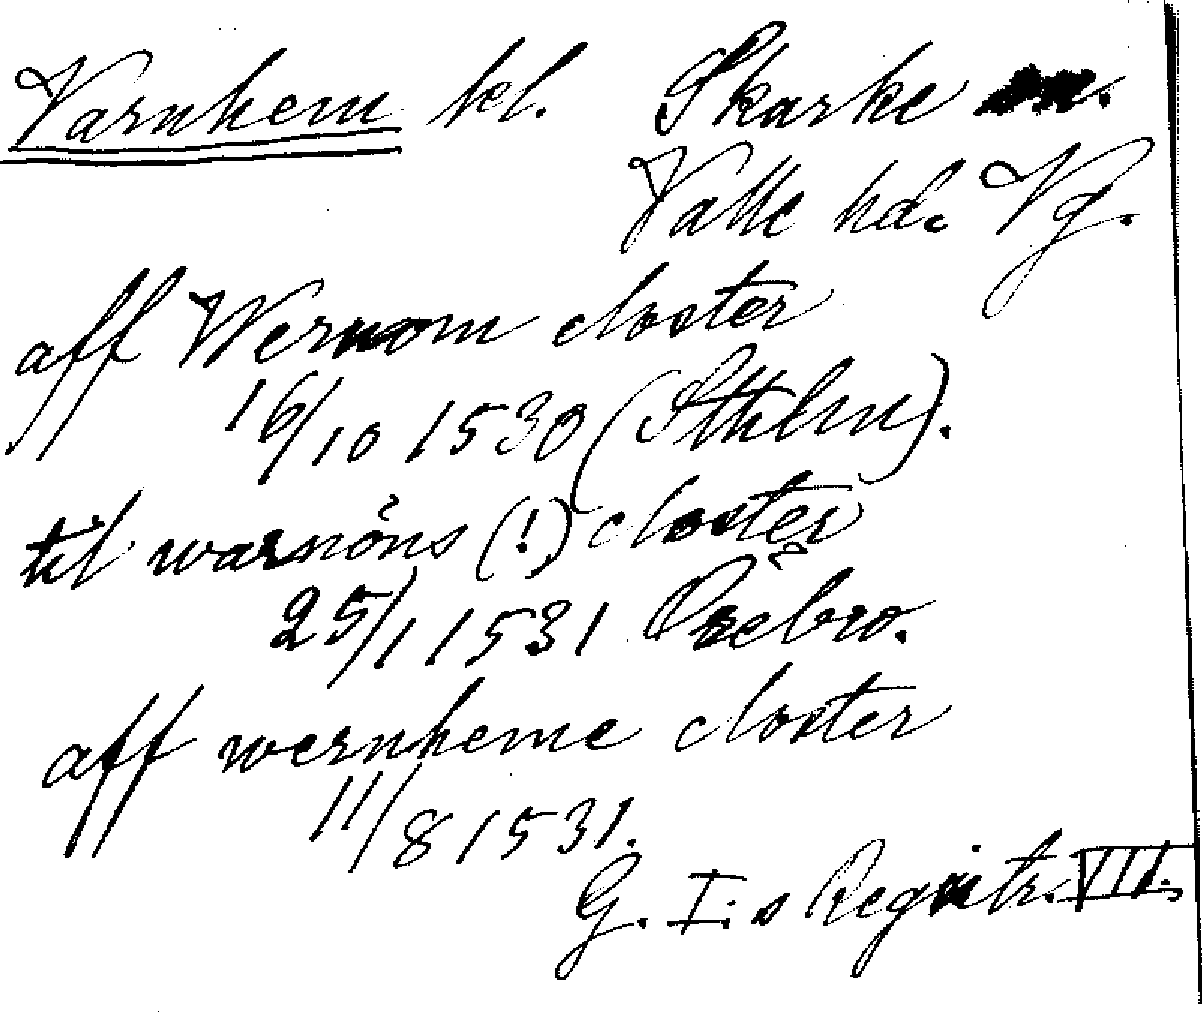 Varnhem kl. Skarke sn.
Valle hd. Vg.
aff Wernom closter
16/10 1530 (Sthlm).
til warnöns (!) closter
25/1 1531 Örebro.
aff wernheme closter
11/8 1531.
G. I:s Registr. VII.